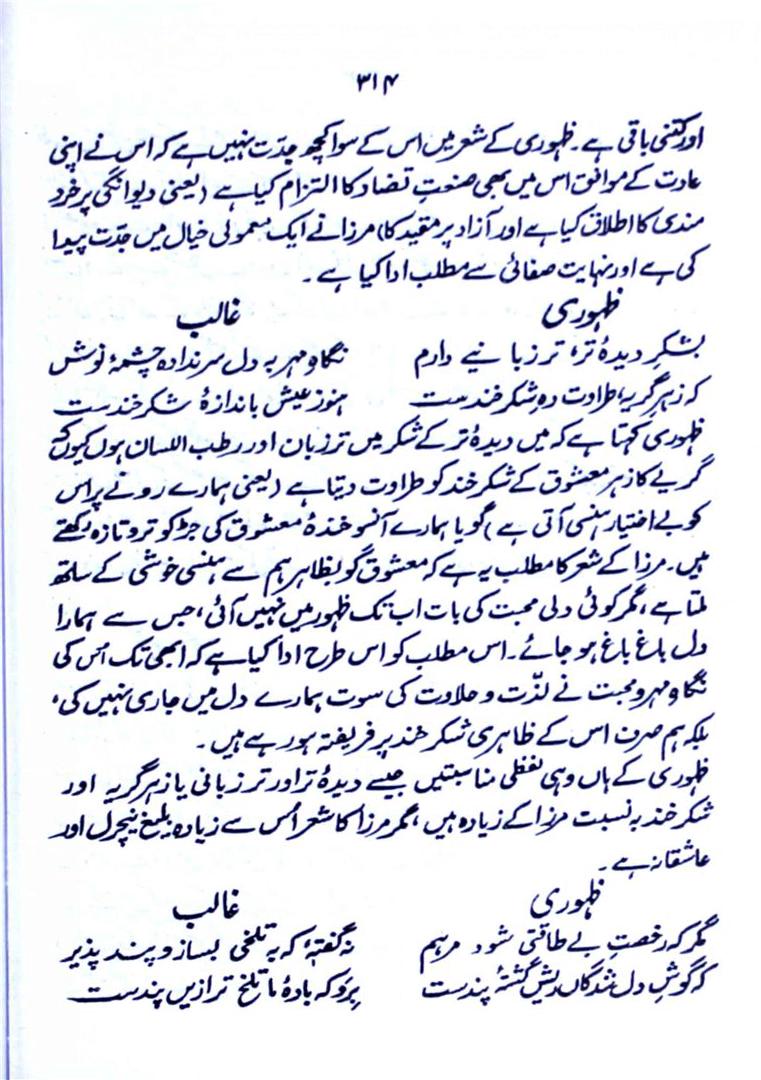 ۳۱۴
اور کتنی باقی ہے۔ ظہوری کے شعر میں اس کے سوا کچھ جدّت نہیں ہے کہ اس نے اپنی
عادت کے موافق اس میں بھی صنعتِ تضاد کا التزام کیا ہے (یعنی دیوانگی پر خرد
مندی کا اطلاق کیا ہے اور آزاد پر مقید کا) مرزا نے ایک معمولی خیال میں جدّت پیدا
کی ہے اور نہایت صفائی سے مطلب ادا کیا ہے۔
ظہوری
غالب
بشکرِ دیدۂ تر، تر زبانیے دارم
نگاہِ مہر بہ دل سر ندادہ چشمۂ نوش
کہ زہرِ گریہ، طراوت دہِ شکر خندست
ہنوز عیش باندازۂ شکر خندست
ظہوری کہتا ہے کہ میں دیدۂ تر کے شکر میں تر زبان اور رطب اللسان ہوں کیوں کہ
گریے کا زہر معشوق کے شکر خند کو طراوت دیتا ہے (یعنی ہمارے رونے پر اس
کو بے اختیار ہنسی آتی ہے) گویا ہمارے آنسو خندۂ معشوق کی جڑ کو تر و تازہ رکھتے
ہیں۔ مرزا کے شعر کا مطلب یہ ہے کہ معشوق گو بظاہر ہم سے ہنسی خوشی کے ساتھ
ملتا ہے، مگر کوئی دلی محبت کی بات اب تک ظہور میں نہیں آئی، جس سے ہمارا
دل باغ باغ ہو جائے۔ اس مطلب کو اس طرح ادا کیا ہے کہ ابھی تک اُس کی
نگاہِ مہر و محبت نے لذّت و حلاوت کی سوت ہمارے دل میں جاری نہیں کی،
بلکہ ہم صرف اس کے ظاہری شکر خند پر فریفتہ ہو رہے ہیں۔
ظہوری کے ہاں وہی لفظی مناسبتیں جیسے دیدۂ تر اور تر زبانی یا زہر گریہ اور
شکر خند بہ نسبت مرزا کے زیادہ ہیں، مگر مرزا کا شعر اُس سے زیادہ بلیغ نیچرل اور
عاشقانہ ہے۔
ظہوری
غالب
مگر کہ رخصتِ بے طاقتی شود مرہم
نہ گفتۂ کہ بہ تلخی بساز و پند پذیر
کہ گوشِ دل شدگاں ریش گشتۂ پندست
بِرَو کہ بادۂ ما تلخ تر ازیں پندست